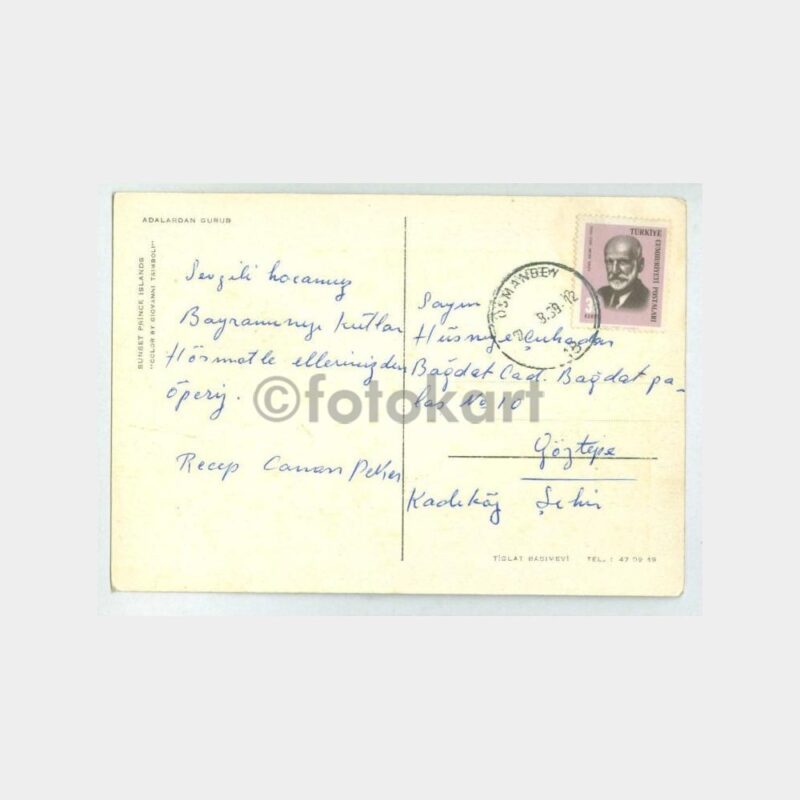 ADALARDAN GURUB
SUNSET PRINCE ISLANDS
"COLOR BY GIOVANNI TRIMBOLI"
Sevgili hocamız
Bayramınızı kutlar
Hörmetle ellerinizden
öperiz.
Recep Canan Peker
TÜRKİYE
CUMHURİYETİ POSTALARI
OSMANBEY
Sayın
Hüsniye Çuhadar
Bağdat Cad. Bağdat pa-
las No 10
Göztepe
Kadıköy Şehir
TİGLAT BASIMEVİ TEL. : 47 09 19
©fotokart